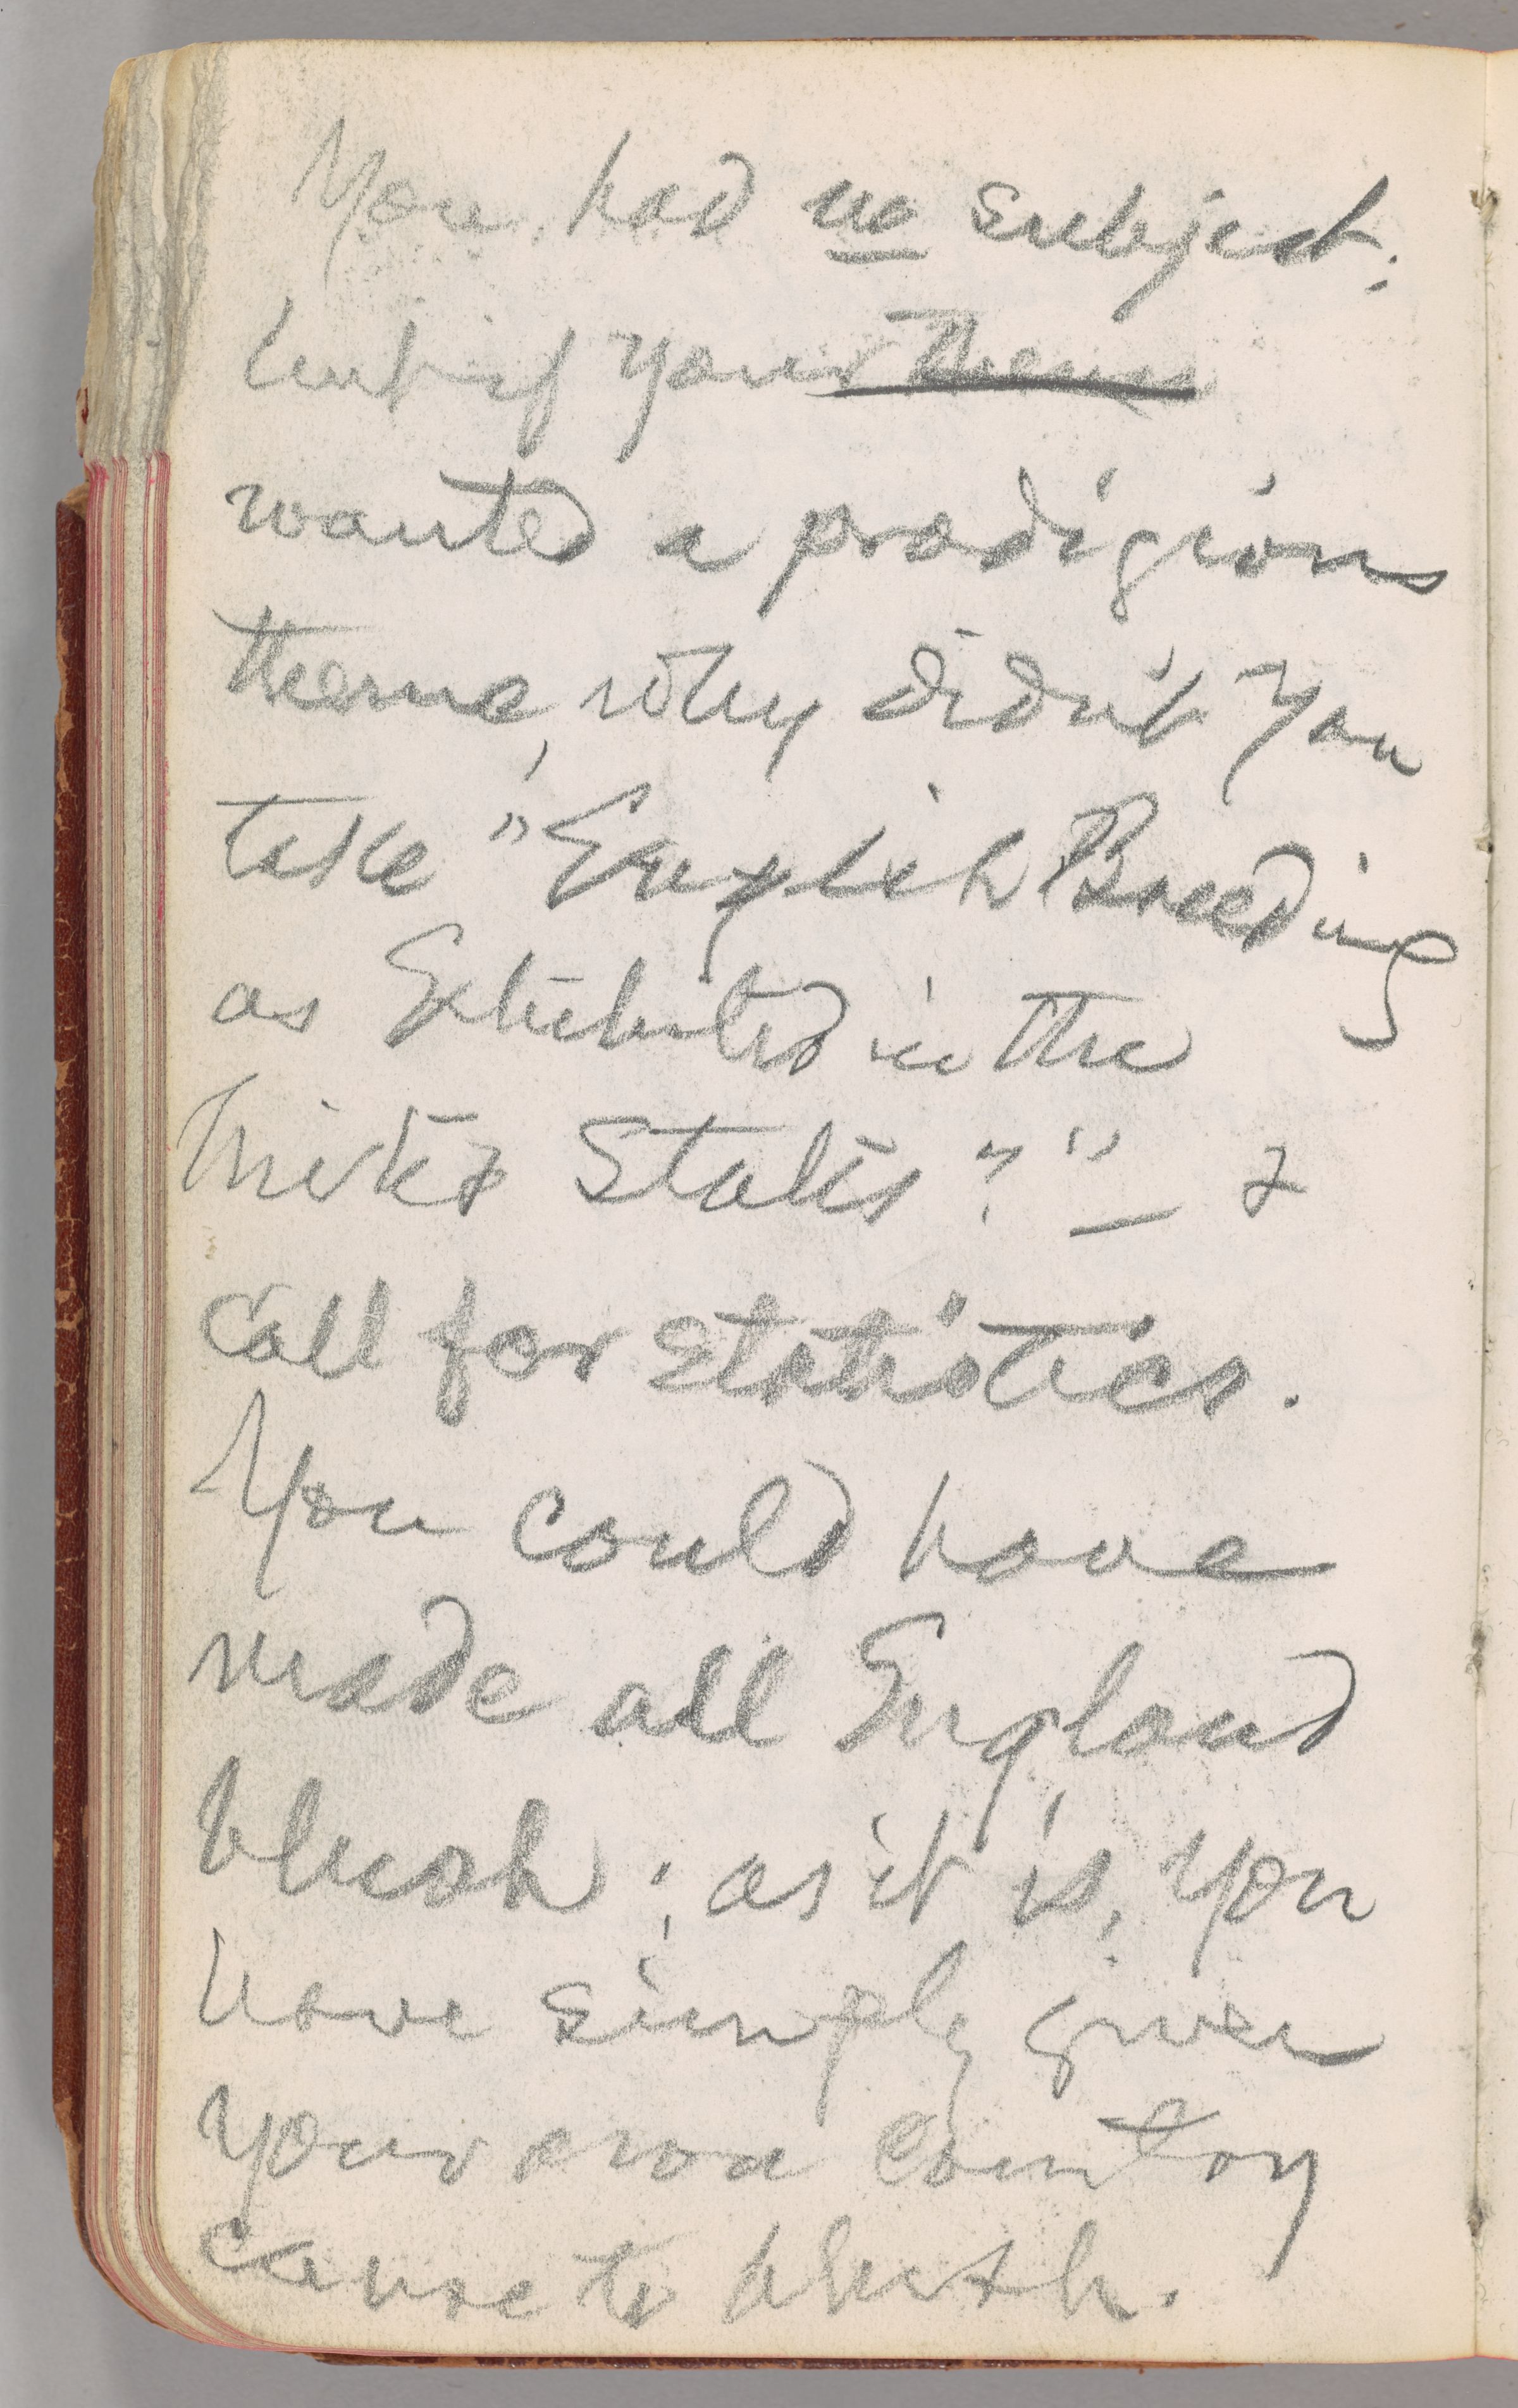 You had no subject;
but if your theme
wanted a prodigious
theme, why didn't you
take "English Breeding
as Exhibited in the
United States?" — &
call for statistics.
You could have
made all England
blush; as it is, you
have simply given
your own country
cause to blush.